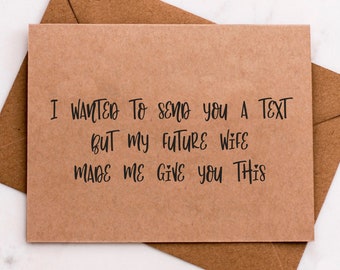 I WANTED TO SEND YOU A TEXT
BUT MY FUTURE WIFE
MADE ME GIVE YOU THIS